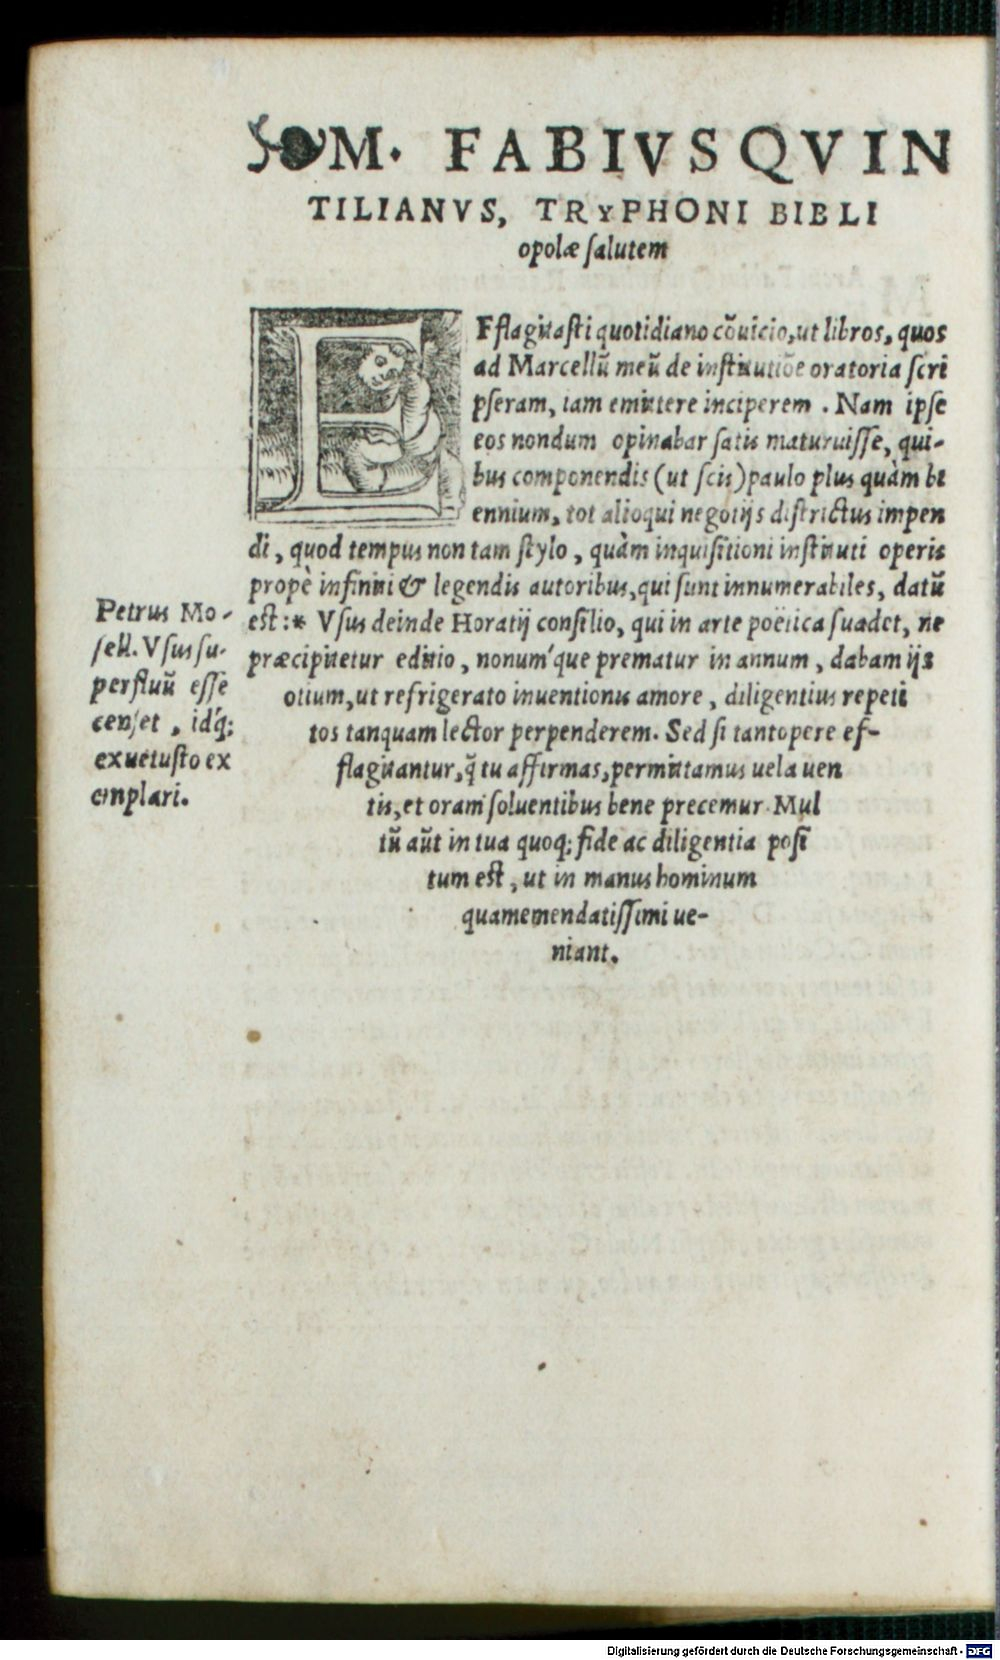 M. FABIVS QVIN
TILIANVS, TRYPHONI BIBLI
opolæ salutem
EFflagitasti quotidiano cõuicio, ut libros, quos
ad Marcellũ meũ de institutiõe oratoria scri
pseram, iam emittere inciperem. Nam ipse
eos nondum opinabar satis maturuisse, qui-
bus componendis (ut scis) paulo plus quàm bi
ennium, tot alioqui negotijs districtus impen
di, quod tempus non tam stylo, quàm inquisitioni instituti operis
propè infiniti & legendis autoribus, qui sunt innumerabiles, datũ
est:* Vsus deinde Horatij consilio, qui in arte poëtica suadet, ne
præcipitetur editio, nonum'que prematur in annum, dabam ijs
otium, ut refrigerato inuentionis amore, diligentius repeti
tos tanquam lector perpenderem. Sed si tantopere ef-
flagitantur, q̃ tu affirmas, permittamus uela uen
tis, et oram soluentibus bene precemur. Mul
tũ aũt in tua quoq; fide ac diligentia posi
tum est, ut in manus hominum
quamemendatissimi ue-
niant.
Petrus Mo-
sell. Vsus su-
perfluũ esse
censet, idq́;
ex uetusto ex
emplari.
Digitalisierung gefördert durch die Deutsche Forschungsgemeinschaft - DFG